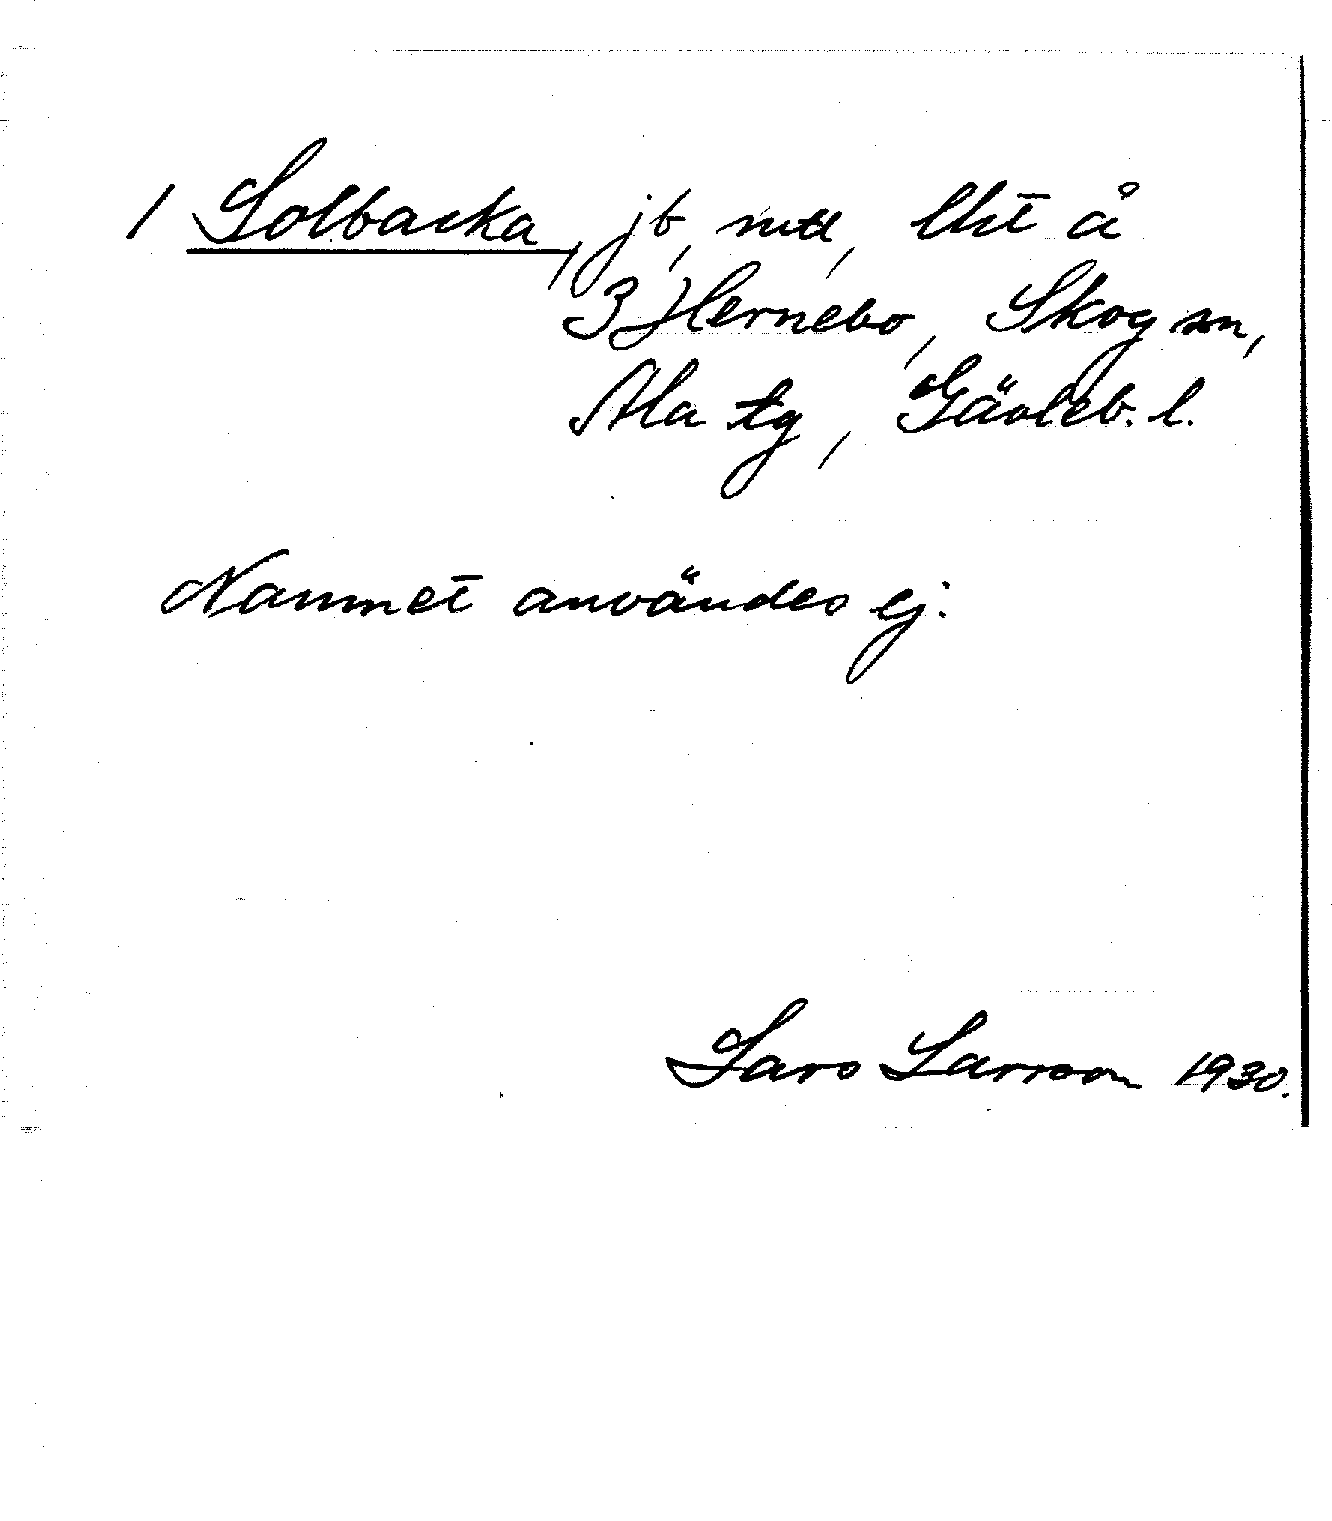 1 Solbacka, jb, mtl, lht å
3 Hernebo, Skog sn,
Ala tg, Gävleb. l.
Namnet användes ej.
Lars Larsson 1930.